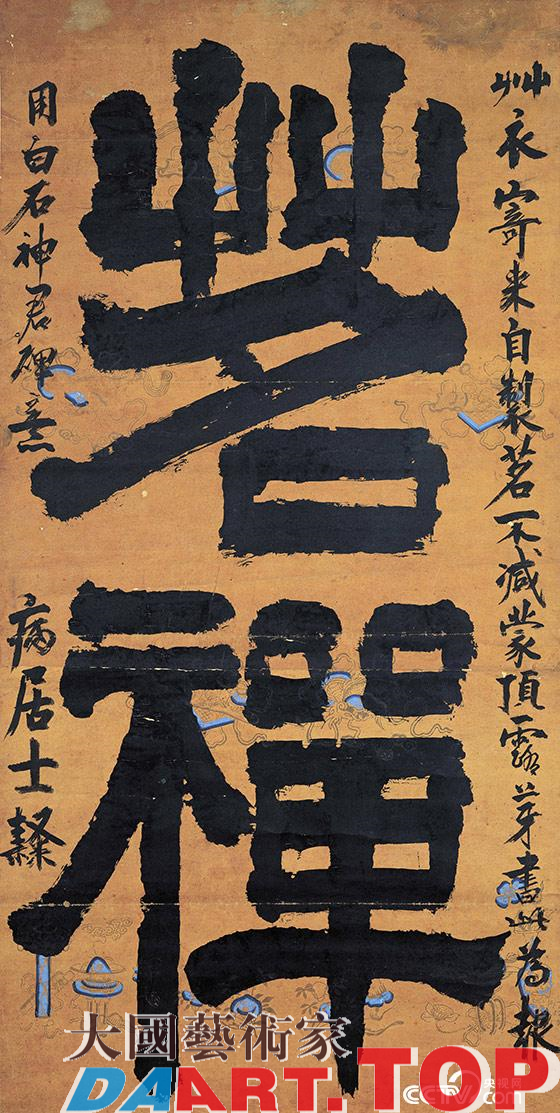 艸衣寄来自製茗不減蒙頂露芽書此為報
茗禪
用白石神君碑意
病居士隸
大國藝術家
DAART.TOP
央视网
CCTV